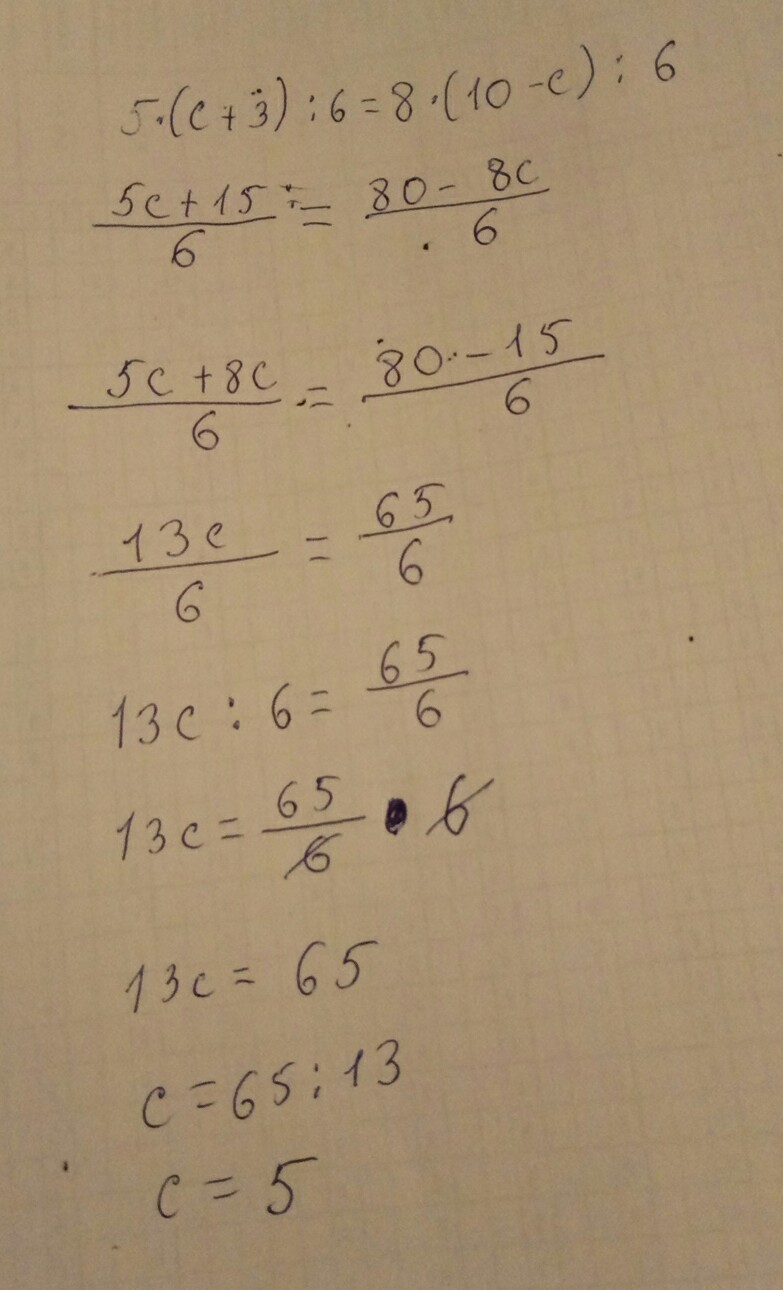 5·(c+3):6=8·(10-c):6
5c+15/6 = 80-8c/6
5c+8c/6 = 80-15/6
13c/6 = 65/6
13c:6= 65/6
13c= 65/6 · 6
13c= 65
c=65:13
c=5